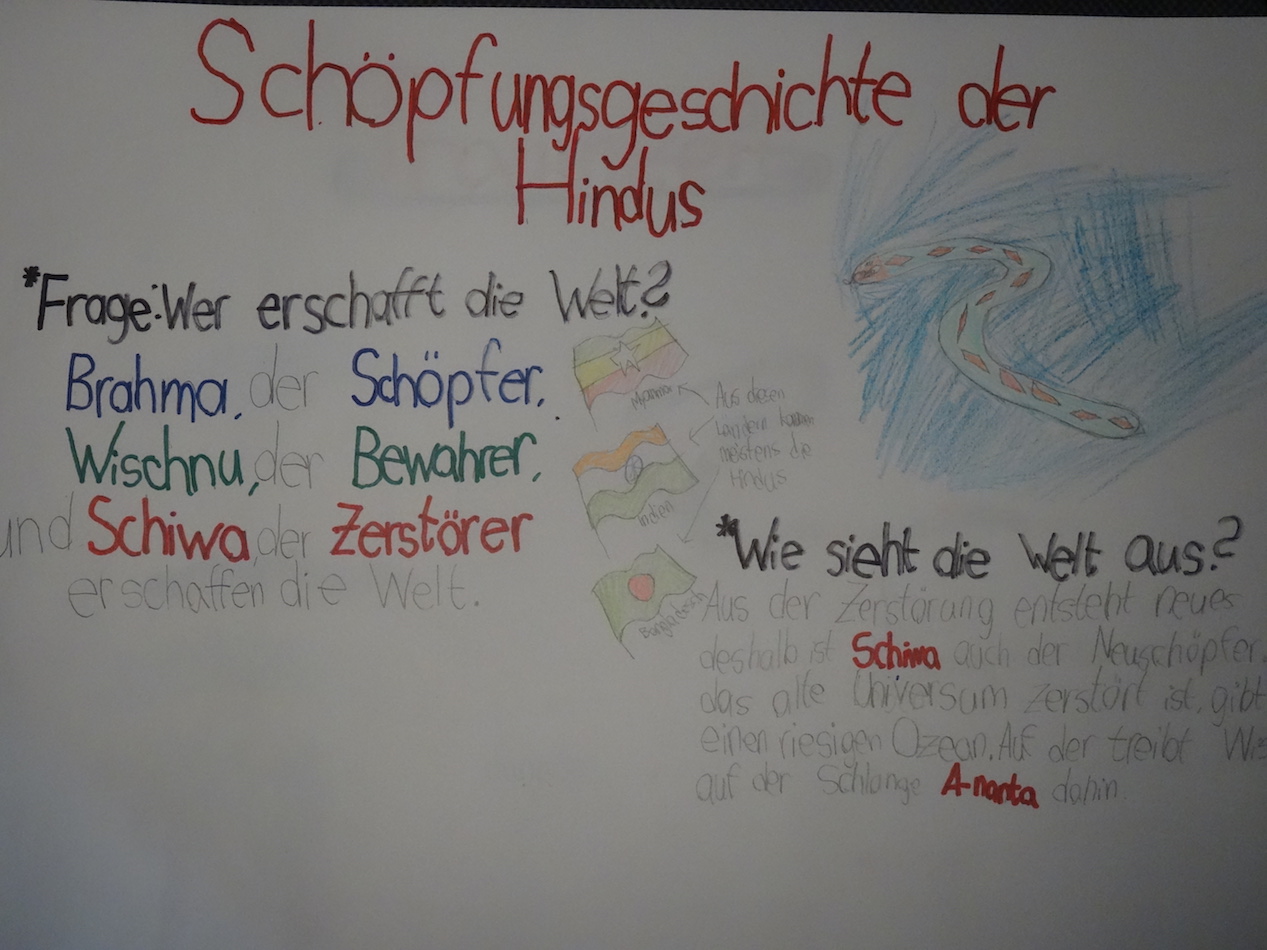 Schöpfungsgeschichte der
Hindus
*Frage: Wer erschafft die Welt?
Brahma, der Schöpfer,
Wischnu, der Bewahrer,
und Schiwa, der Zerstörer
erschaffen die Welt.
Myanmar
Indien
Bangladesch
Aus diesen
Ländern
meistens die
Hindus
*Wie sieht die Welt aus?
Aus der Zerstörung entsteht neues
deshalb ist Schiwa auch der Neuschöpfer.
das alte Universum zerstört ist, gibt
einen riesigen Ozean. Auf der treibt Wis
auf der Schlange A-nanta dahin